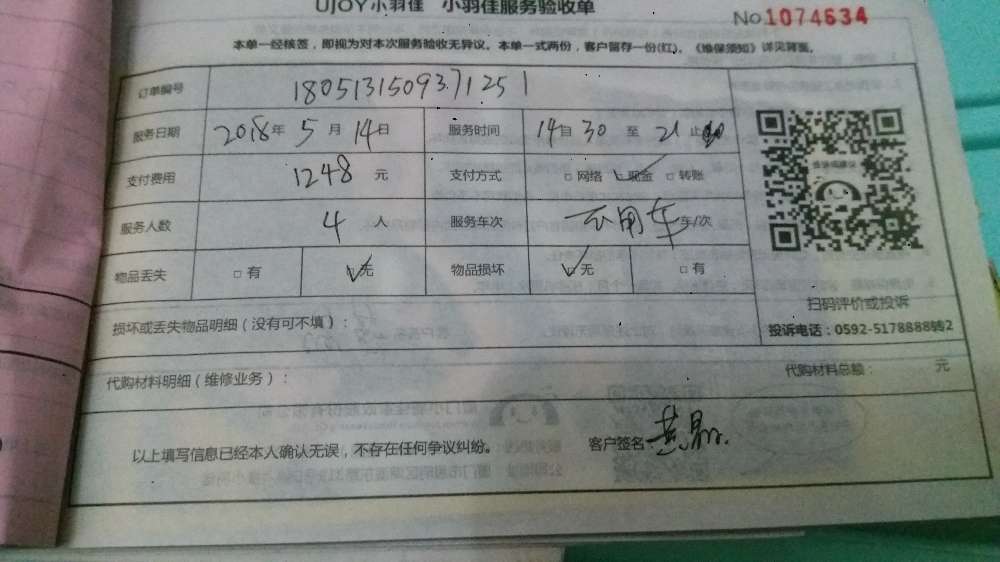 UJOY小羽佳 小羽佳服务验收单
No 1074634
本单一经核签，即视为对本次服务验收无异议。本单一式两份，客户留存一份(红)。《维保须知》详见背面。
订单编号 1805131509371251
服务日期 2018年 5月 14日 服务时间 14自 30 至 21 止
支付费用 1248 元 支付方式 □网络 ☑现金 □转账
服务人数 4 人 服务车次 公用车 车/次
物品丢失 □有 ☑无 物品损坏 ☑无 □有
扫码评价或投诉
损坏或丢失物品明细（没有可不填）：
投诉电话：0592-5178888转2
代购材料明细（维修业务）： 代购材料总额： 元
以上填写信息已经本人确认无误，不存在任何争议纠纷。 客户签名